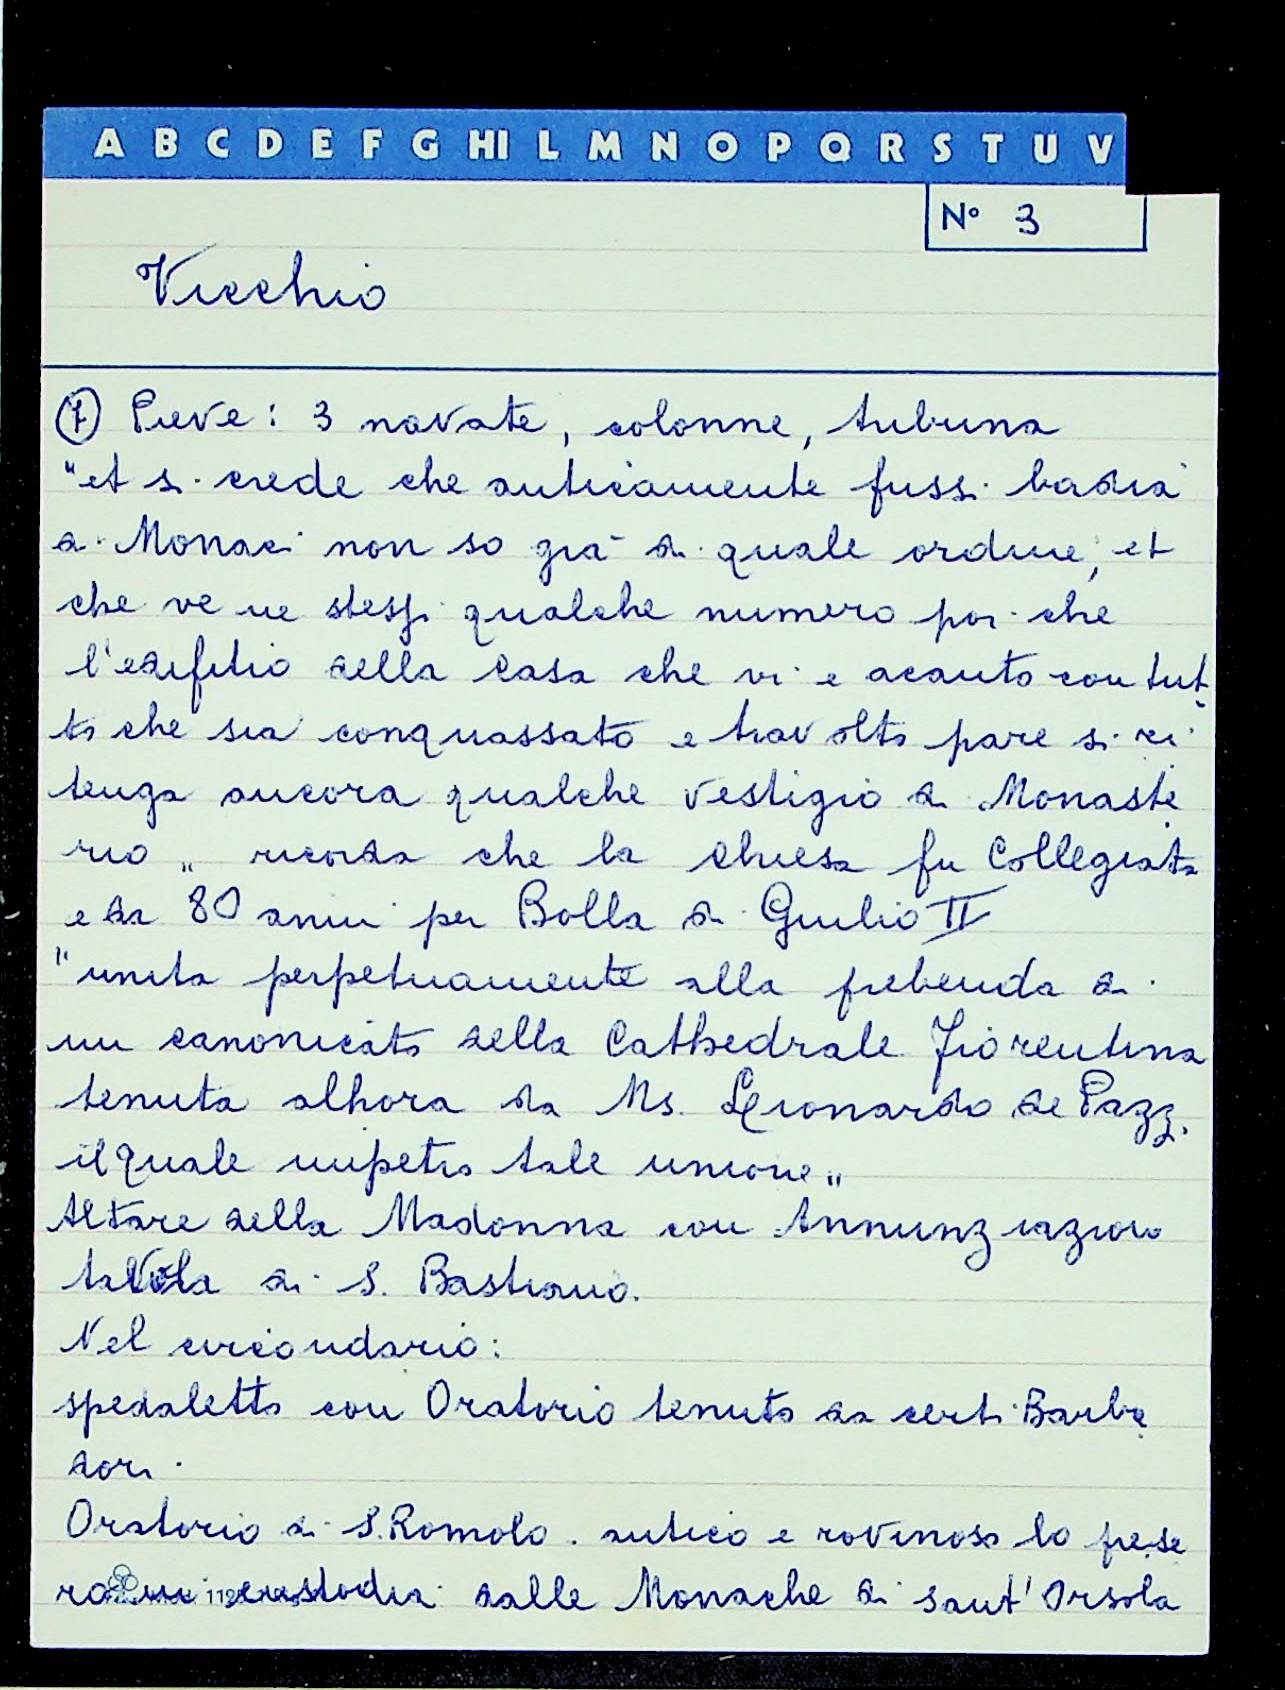 A B C D E F G HI L M N O P Q R S T U V
N° 3
Vicchio
① Pieve: 3 navate, colonne, tribuna
"et si crede che anticamente fussi badia
di Monaci non so già di quale ordine, et
che ve ne stessi qualche numero poi che
l'edifitio della Casa che vi è acanto con tut
to che sia conquassato e travolto pare si ri
tenga ancora qualche vestigio di Monaste
rio„ ricorda che la chiesa fu Collegiata
e da 80 anni per Bolla di Giulio II
"unita perpetuamente alla prebenda di
un canonicato della Cathedrale Fiorentina
tenuta alhora da Ms. Leonardo de Pazzi
il quale impetrò tale unione„
Altare della Madonna con Annunziazion
tavola di S. Bastiano.
Nel circondario:
spedaletto con Oratorio tenuto da certi Barba
dori.
Oratorio di S. Romolo. antico e rovinoso lo prese
ro in custodia dalle Monache di Sant'Orsola